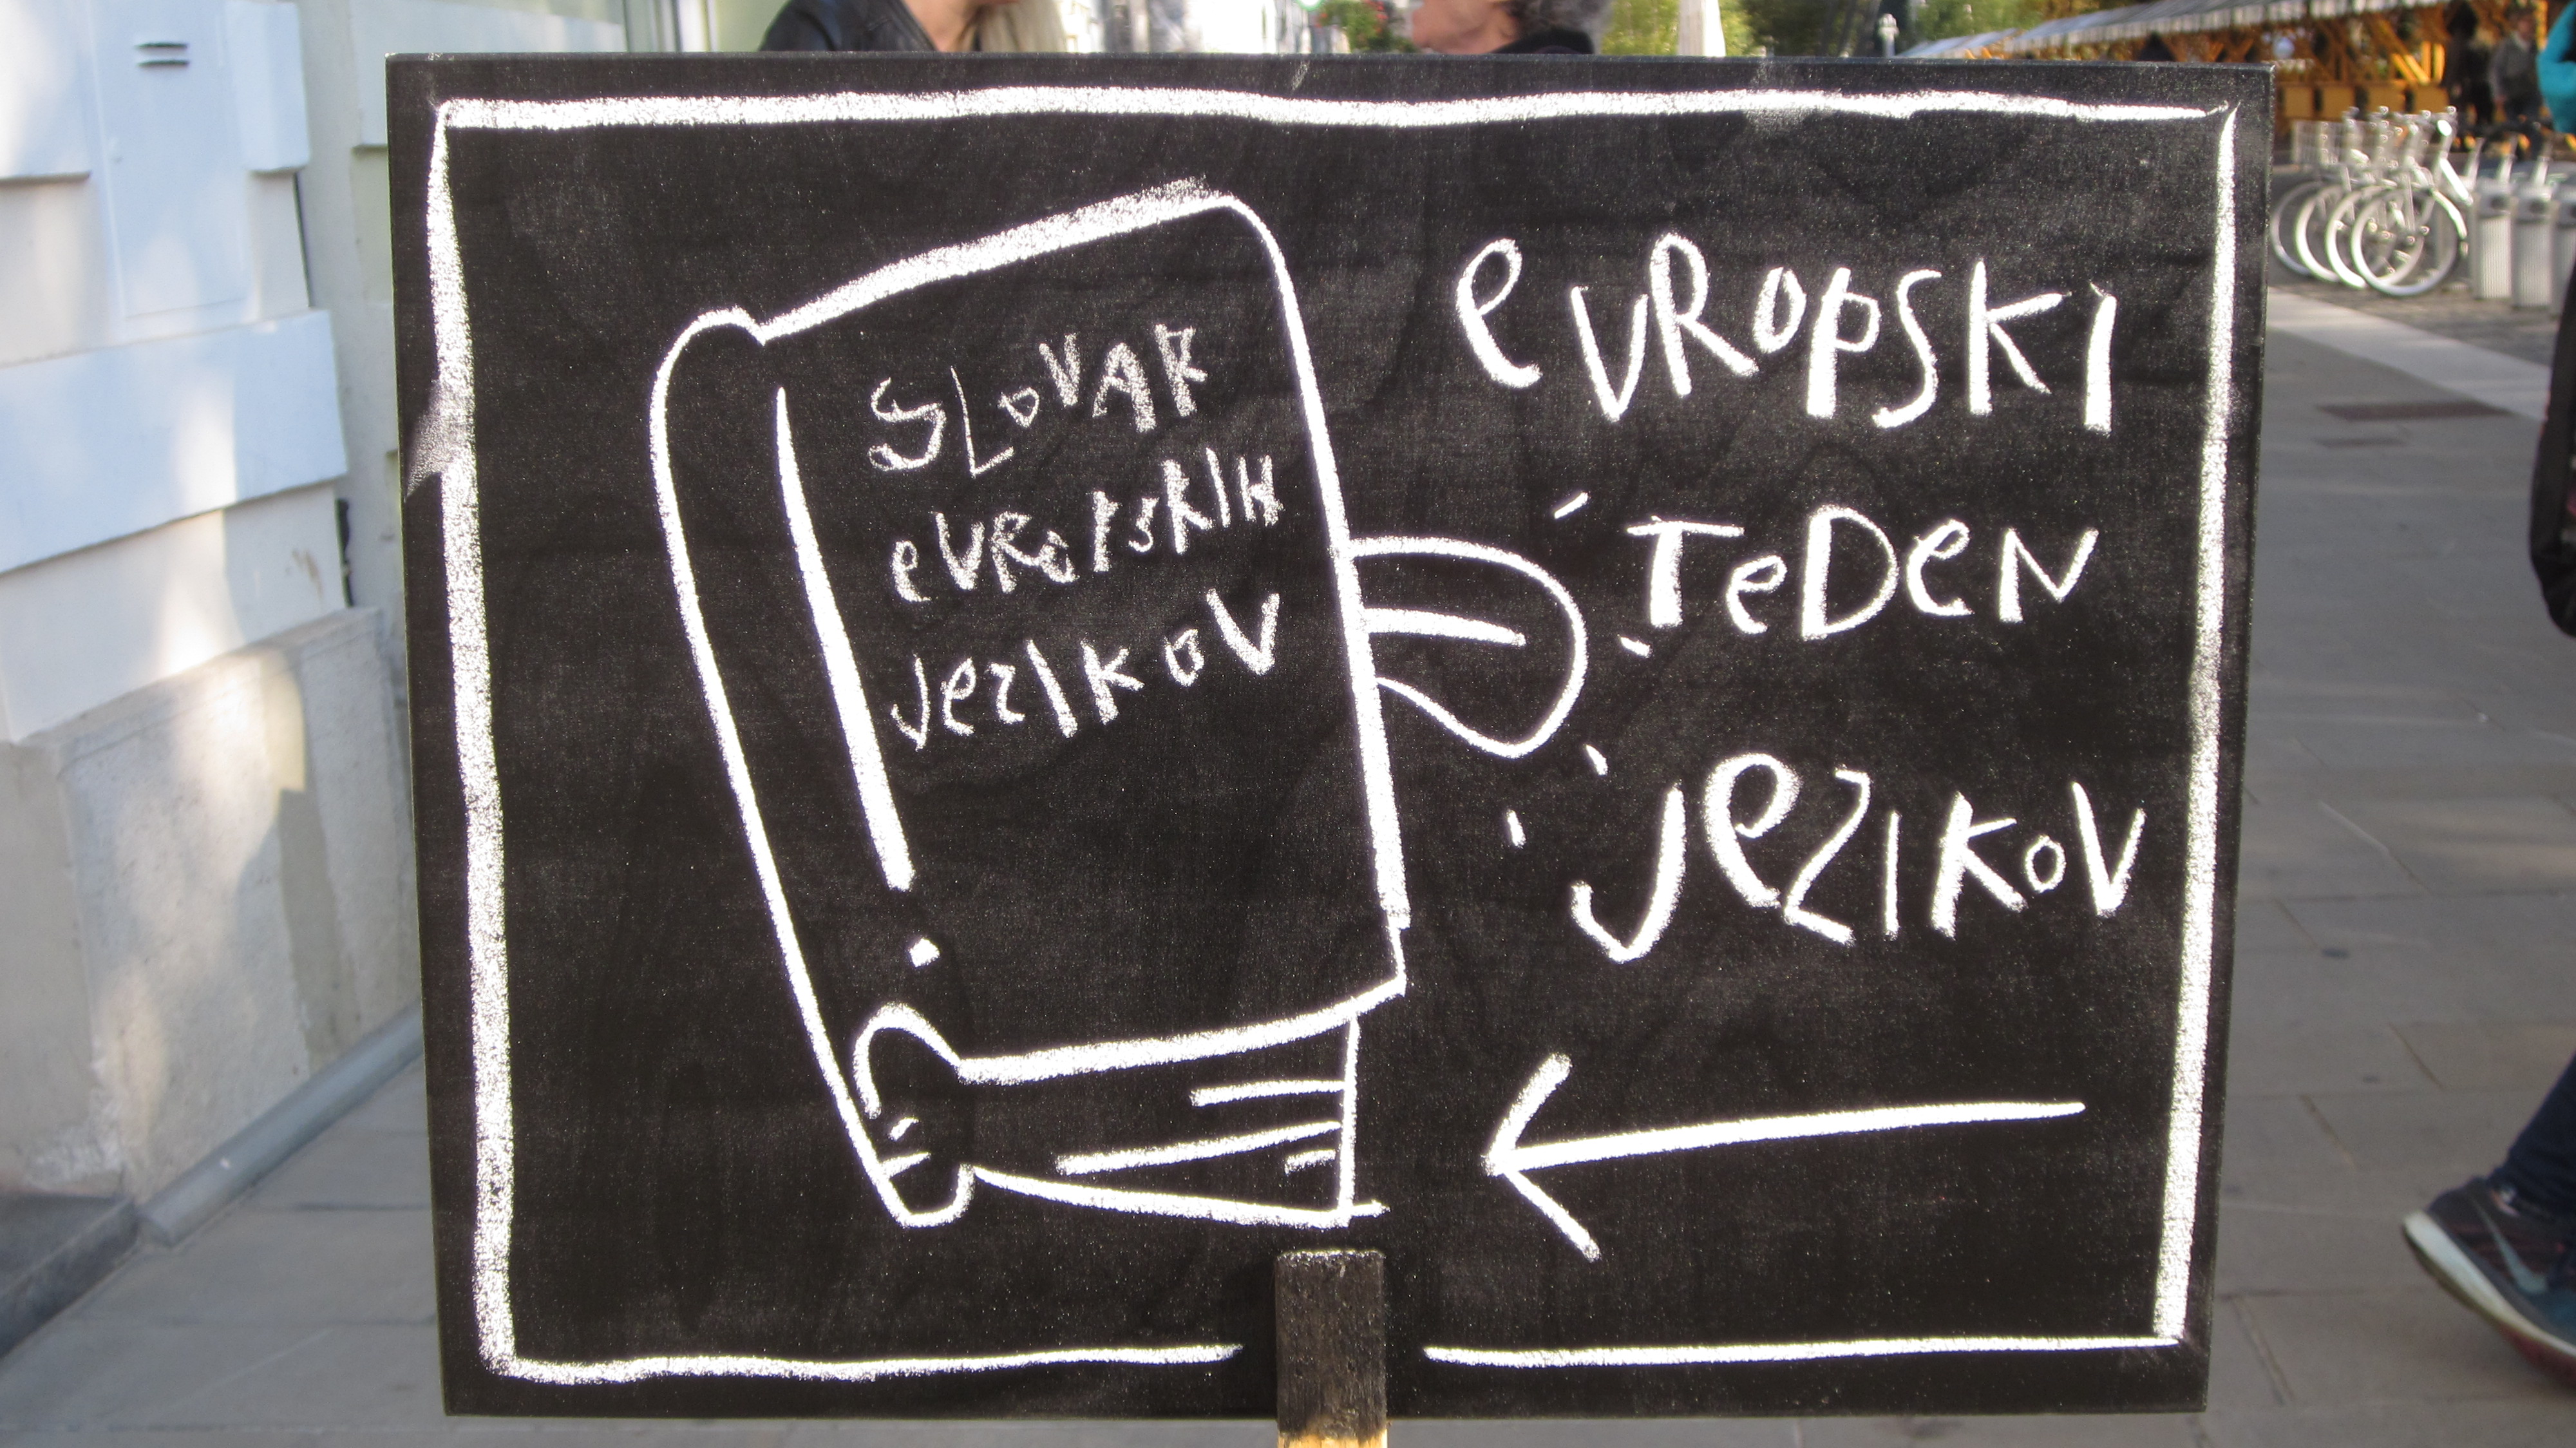 SLOVAR
eVRoPSKIH
JeZIKoV
eVRoPSKI
TeDeN
JeZIKoV